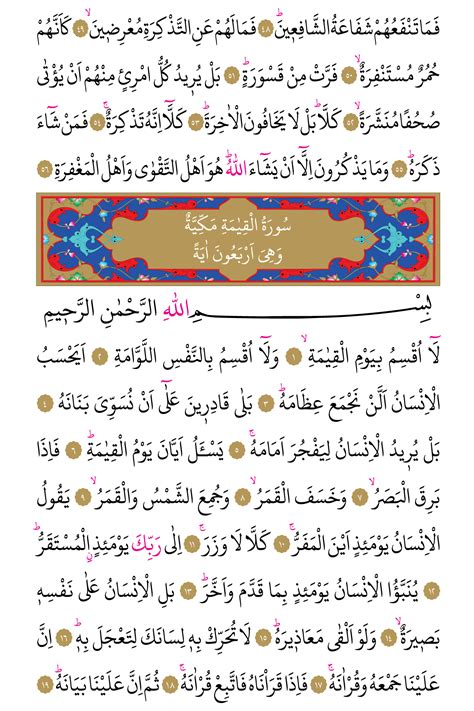 فَمَا تَنْفَعُهُمْ شَفَاعَةُ الشَّافِعِينَۜ ﴿٤٨﴾ فَمَا لَهُمْ عَنِ التَّذْكِرَةِ مُعْرِضِينَۙ ﴿٤٩﴾ كَاَنَّهُمْ
حُمُرٌ مُسْتَنْفِرَةٌۙ ﴿٥٠﴾ فَرَّتْ مِنْ قَسْوَرَةٍۜ ﴿٥١﴾ بَلْ يُرِيدُ كُلُّ امْرِئٍ مِنْهُمْ اَنْ يُؤْتٰى
صُحُفًا مُنَشَّرَةًۙ ﴿٥٢﴾ كَلَّاۜ بَلْ لَا يَخَافُونَ الْاٰخِرَةَۜ ﴿٥٣﴾ كَلَّٓا اِنَّهُ تَذْكِرَةٌۚ ﴿٥٤﴾ فَمَنْ شَٓاءَ
ذَكَرَهُۜ ﴿٥٥﴾ وَمَا يَذْكُرُونَ اِلَّٓا اَنْ يَشَٓاءَ اللّٰهُۜ هُوَ اَهْلُ التَّقْوٰى وَاَهْلُ الْمَغْفِرَةِ ﴿٥٦﴾
سُورَةُ الْقِيٰمَةِ مَكِّيَّةٌ
وَهِىَ اَرْبَعُونَ اٰيَةً
بِسْمِ اللّٰهِ الرَّحْمٰنِ الرَّحِيمِ
لَٓا اُقْسِمُ بِيَوْمِ الْقِيٰمَةِۙ ﴿١﴾ وَلَٓا اُقْسِمُ بِالنَّفْسِ اللَّوَّامَةِ ﴿٢﴾ اَيَحْسَبُ
الْاِنْسَانُ اَلَّنْ نَجْمَعَ عِظَامَهُۜ ﴿٣﴾ بَلٰى قَادِرِينَ عَلٰٓى اَنْ نُسَوِّىَ بَنَانَهُ ﴿٤﴾
بَلْ يُرِيدُ الْاِنْسَانُ لِيَفْجُرَ اَمَامَهُۚ ﴿٥﴾ يَسْـَٔلُ اَيَّانَ يَوْمُ الْقِيٰمَةِۜ ﴿٦﴾ فَاِذَا
بَرِقَ الْبَصَرُۙ ﴿٧﴾ وَخَسَفَ الْقَمَرُۙ ﴿٨﴾ وَجُمِعَ الشَّمْسُ وَالْقَمَرُۙ ﴿٩﴾ يَقُولُ
الْاِنْسَانُ يَوْمَئِذٍ اَيْنَ الْمَفَرُّۚ ﴿١٠﴾ كَلَّا لَا وَزَرَۜ ﴿١١﴾ اِلٰى رَبِّكَ يَوْمَئِذٍۨ الْمُسْتَقَرُّۜ
﴿١٢﴾ يُنَبَّؤُا الْاِنْسَانُ يَوْمَئِذٍ بِمَا قَدَّمَ وَاَخَّرَۜ ﴿١٣﴾ بَلِ الْاِنْسَانُ عَلٰى نَفْسِهِ
بَصِيرَةٌۙ ﴿١٤﴾ وَلَوْ اَلْقٰى مَعَاذِيرَهُۜ ﴿١٥﴾ لَا تُحَرِّكْ بِهِ لِسَانَكَ لِتَعْجَلَ بِهِۜ ﴿١٦﴾ اِنَّ
عَلَيْنَا جَمْعَهُ وَقُرْاٰنَهُۚ ﴿١٧﴾ فَاِذَا قَرَاْنَاهُ فَاتَّبِعْ قُرْاٰنَهُۚ ﴿١٨﴾ ثُمَّ اِنَّ عَلَيْنَا بَيَانَهُۜ ﴿١٩﴾